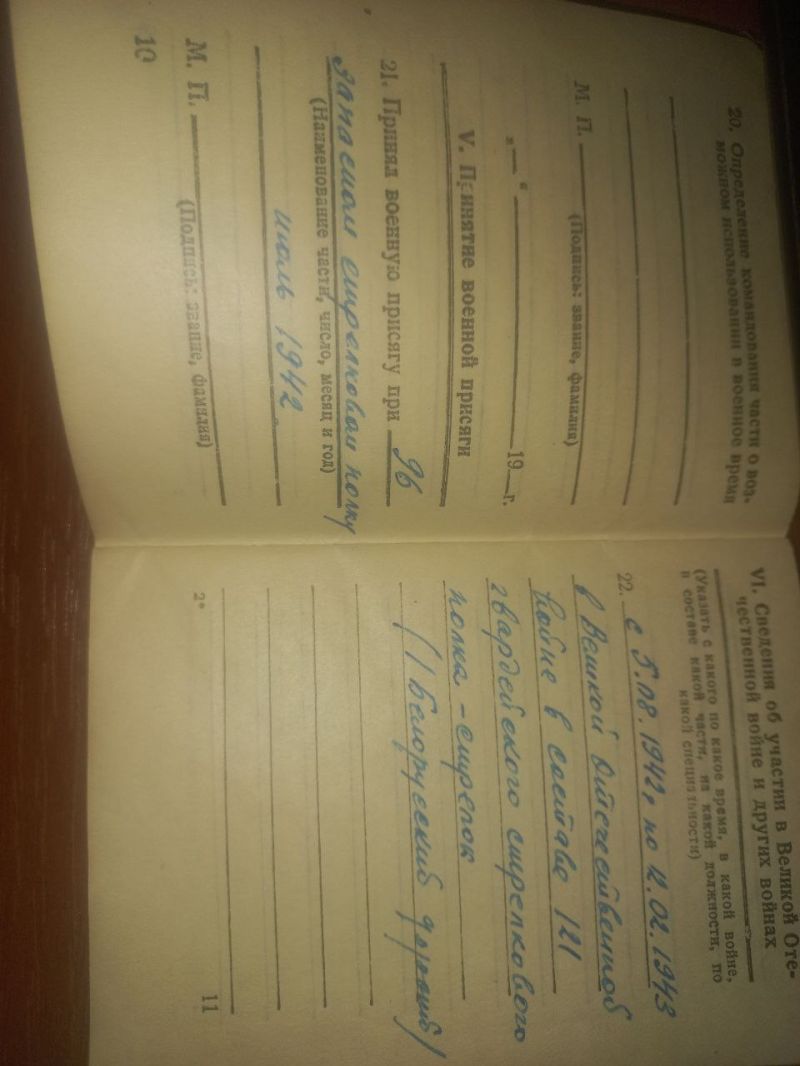 20. Определение командования части о воз-
можном использовании в военное время
М. П. (Подпись: звание, фамилия)
„ “ 19 г.
V. Принятие военной присяги
21. Принял военную присягу при 96
запасном стрелковом полку
(Наименование части, число, месяц и год)
июль 1942
М. П.
(Подпись: звание, фамилия)
10
VI. Сведения об участии в Великой Оте-
чественной войне и других войнах
(Указать с какого по какое время, в какой войне,
в составе какой части, на какой должности, по
какой специальности)
22. с 5.08.1942, по 12.02.1943
в Великой Отечественной
войне в составе 121
гвардейского стрелкового
полка - стрелок
(I Белорусский фронт)
2*
11